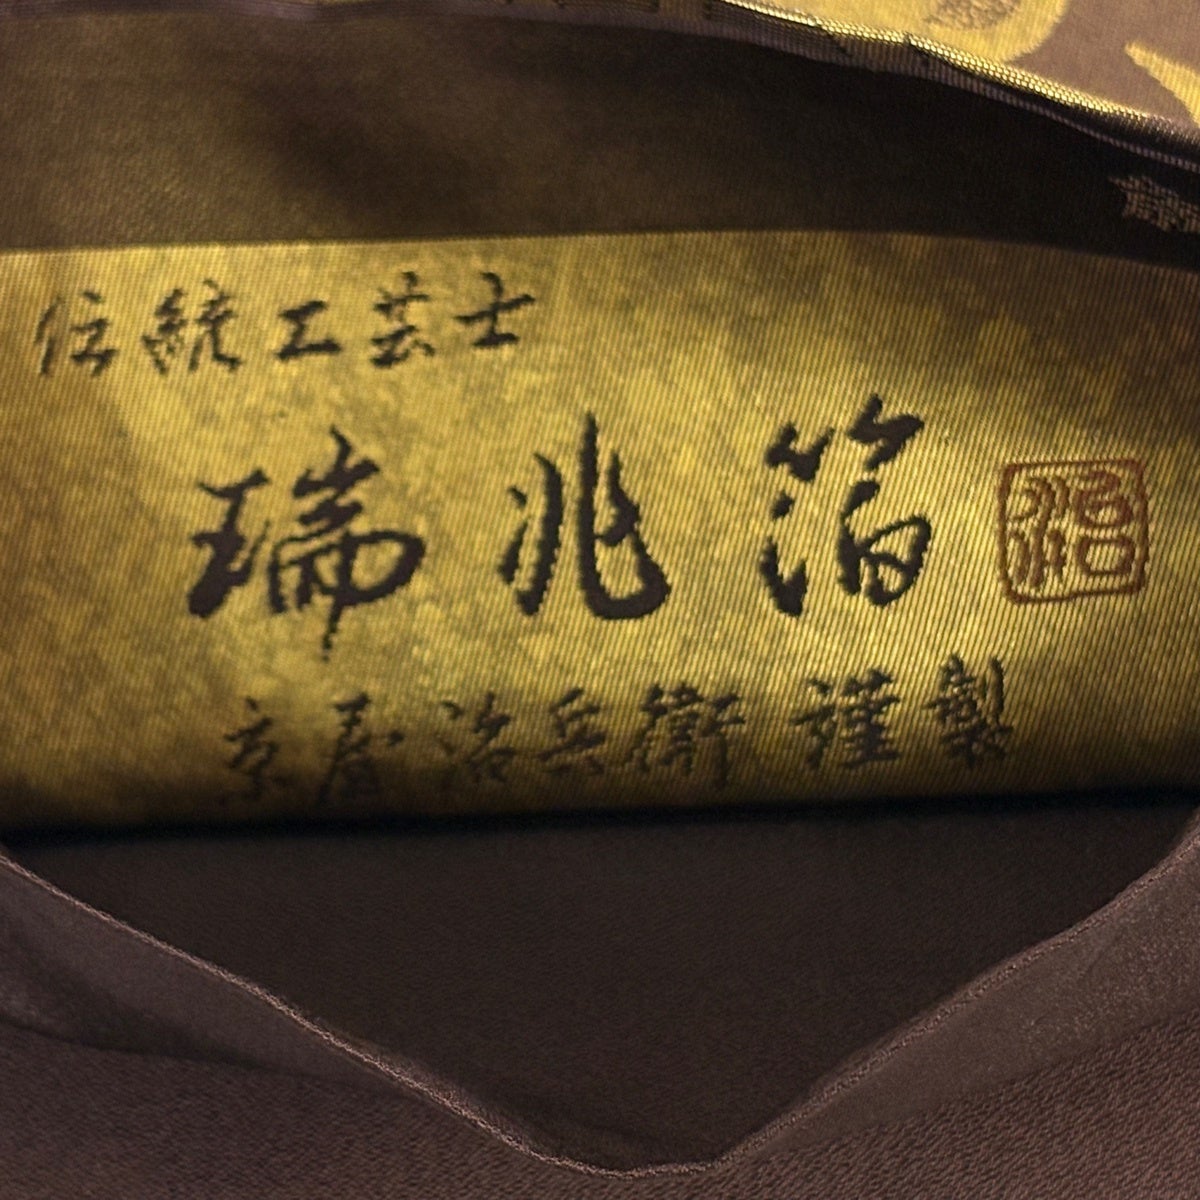 伝統工芸士
瑞兆箔
京屋洛兵衛謹製